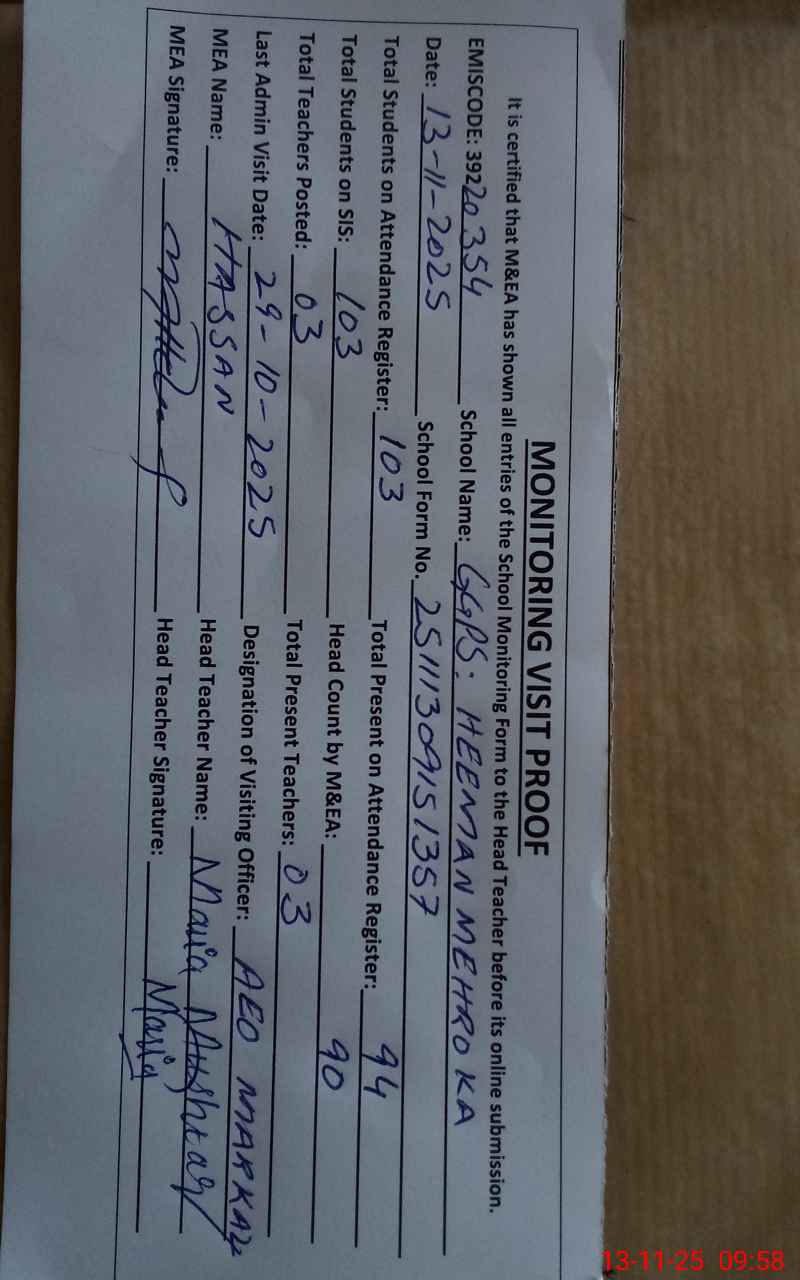 MONITORING VISIT PROOF
It is certified that M&EA has shown all entries of the School Monitoring Form to the Head Teacher before its online submission.
EMISCODE: 39220354 School Name: GGPS: HEEMAN MEHROKA
Date: 13-11-2025 School Form No. 25111309151357
Total Students on Attendance Register: 103 Total Present on Attendance Register: 94
Total Students on SIS: 103 Head Count by M&EA: 90
Total Teachers Posted: 03 Total Present Teachers: 03
Last Admin Visit Date: 29-10-2025 Designation of Visiting Officer: AEO MARKAZ
MEA Name: HASSAN Head Teacher Name: Maria
MEA Signature: Head Teacher Signature: Maria
13-11-25 09:58